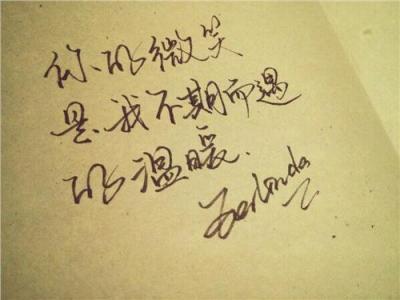 你的微笑
是我不期而遇
的温暖.